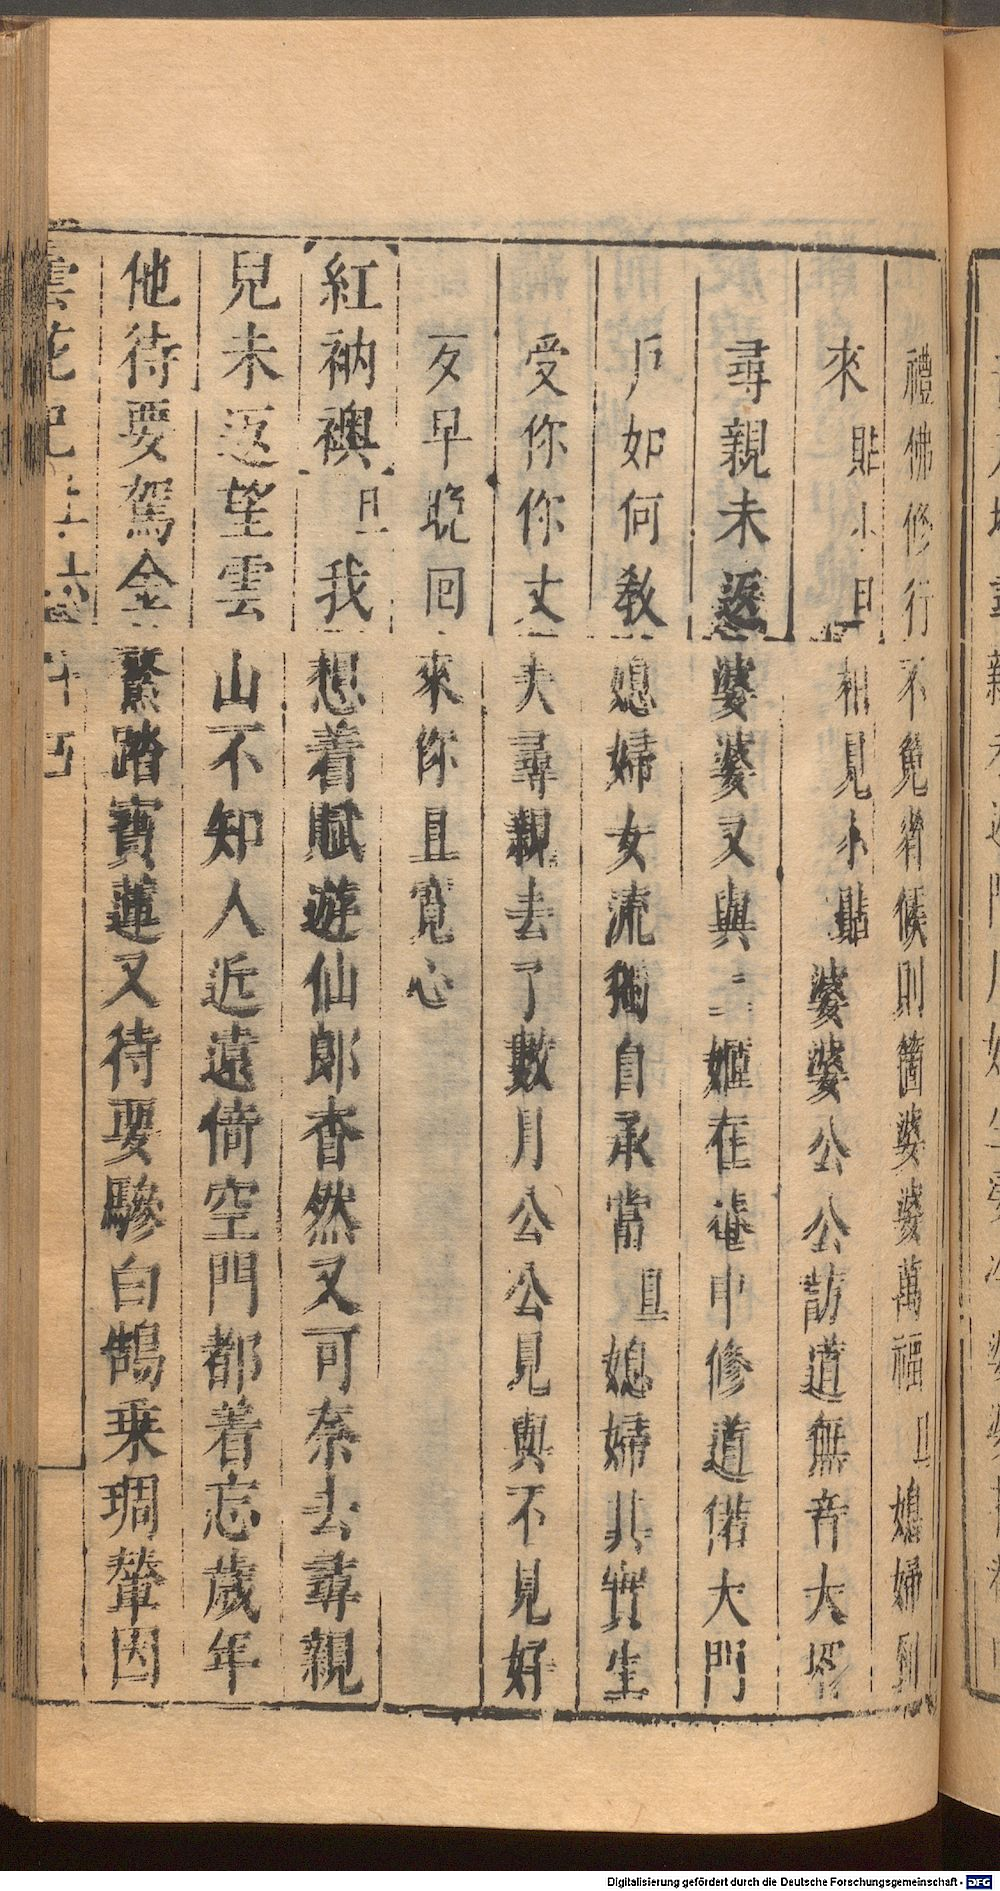 禮佛修行不免省候則箇婆婆萬福旦媳婦到
來貼小旦相見小貼婆婆公公訪道無音大哥
尋親未返婆婆又與二娘在菴中修道偌大門
戶如何教媳婦女流獨自承當旦媳婦其實生
受你你丈夫尋親去了數月公公見與不見好
歹早晚回來你且寬心
紅衲襖旦我想着賦遊仙郎杳然又可奈去尋親
兒未返望雲山不知人近遠倚空門都着忘歲年
他待要駕金鰲踏寶蓮又待要驂白鵠乗琱輦因
曇花記上卷
Digitalisierung gefördert durch die Deutsche Forschungsgemeinschaft - DFG